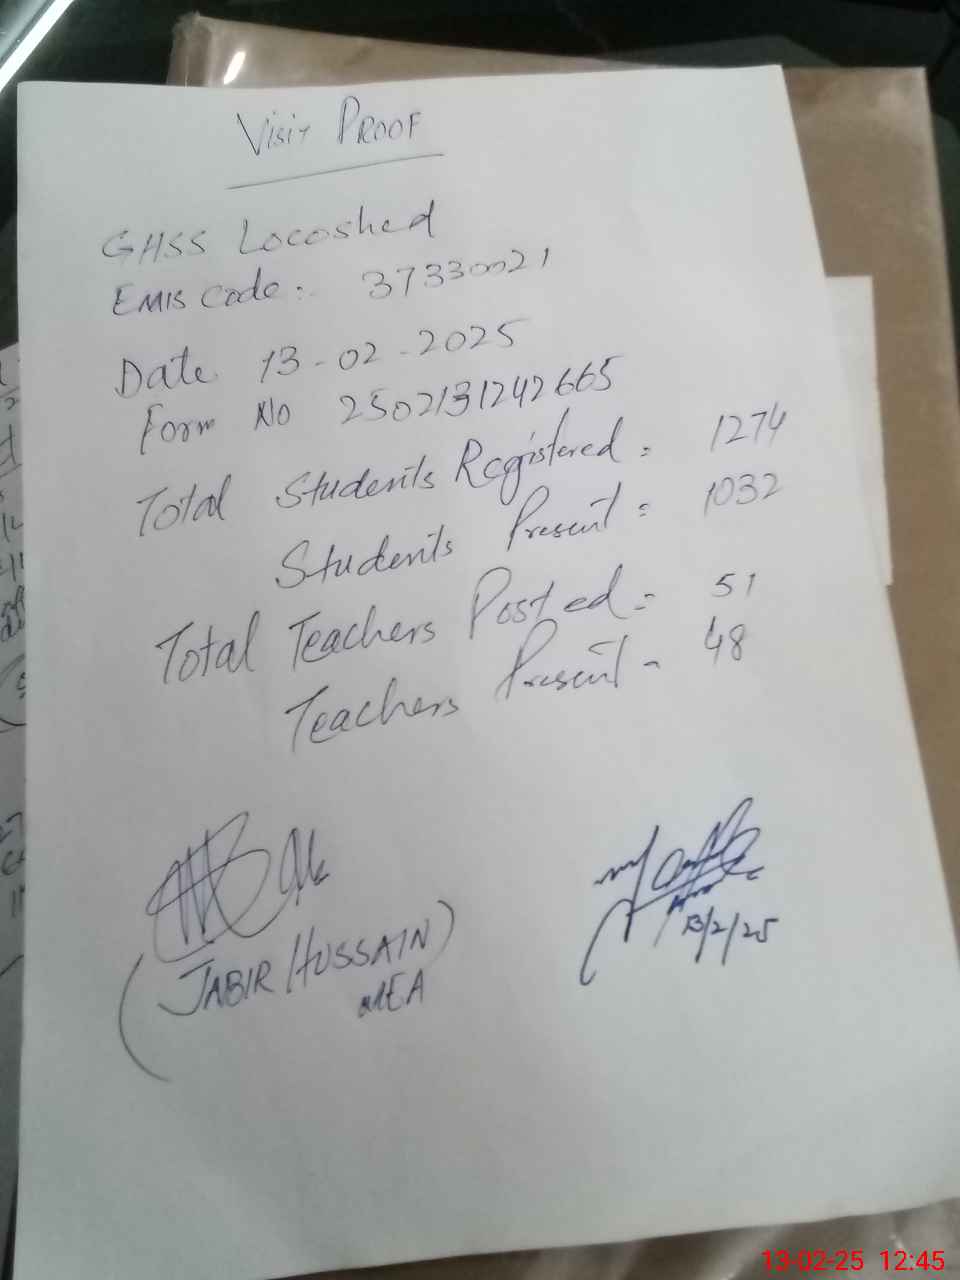 VISIT PROOF
GHSS Locoshed
EMIS Code:. 37330021
Date 13-02-2025
Form No 2502131242665
Total Students Registered = 1274
Students Present = 1032
Total Teachers Posted = 51
Teachers Present - 48
(JABIR HUSSAIN)
MEA
13/2/25
13-02-25 12:45